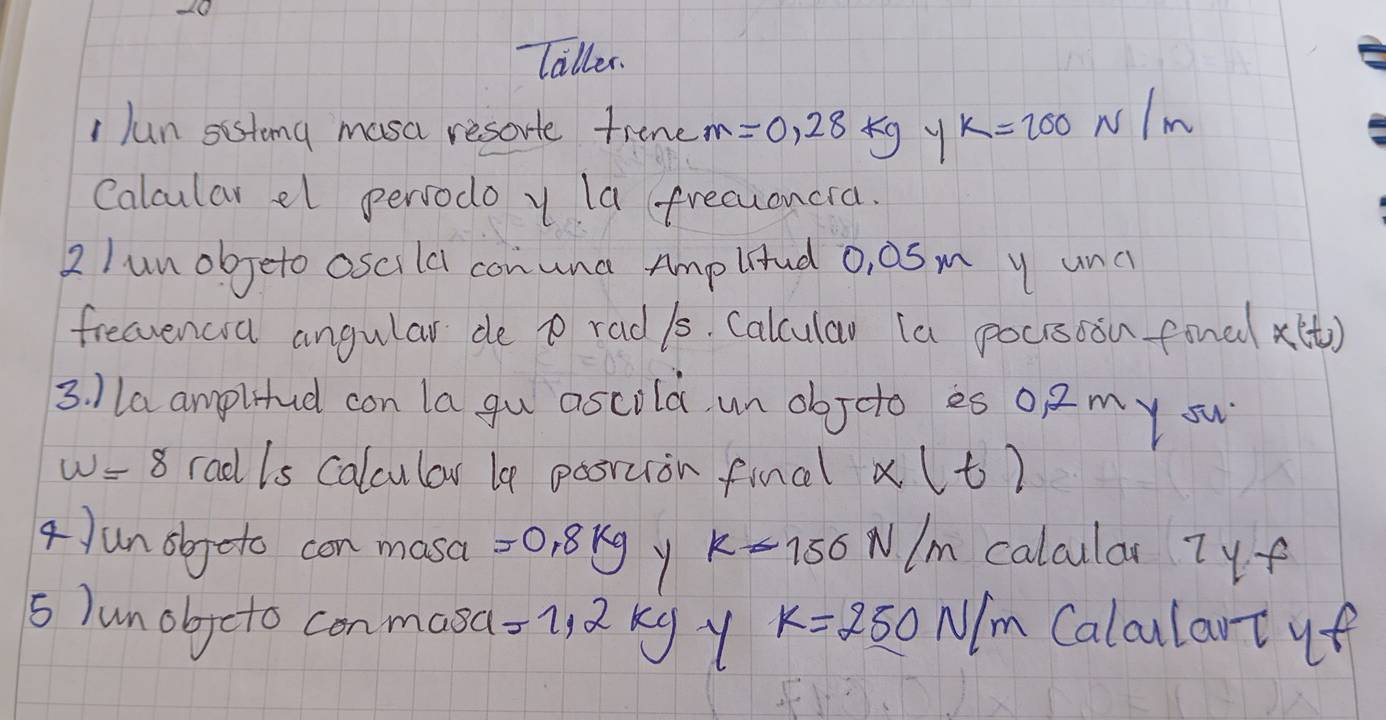 20
Taller.
1) un sistema masa resorte tiene m=0,28 kg y K=200 N/m
Calcular el periodo y la frecuencia.
2) un objeto oscila con una Amplitud 0,05m y una
frecuencia angular de rad/s. Calcular la pocision final x(t)
3.) la amplitud con la qu oscila un objeto es 0,2 m y su
w= 8 rad/s calcular la posicion final x(t)
4) un objeto con masa =0,8 Kg y K= 150 N/m calcular T y f
5) un objeto con masa = 1,2 kg y K=250 N/m Calcular T y f